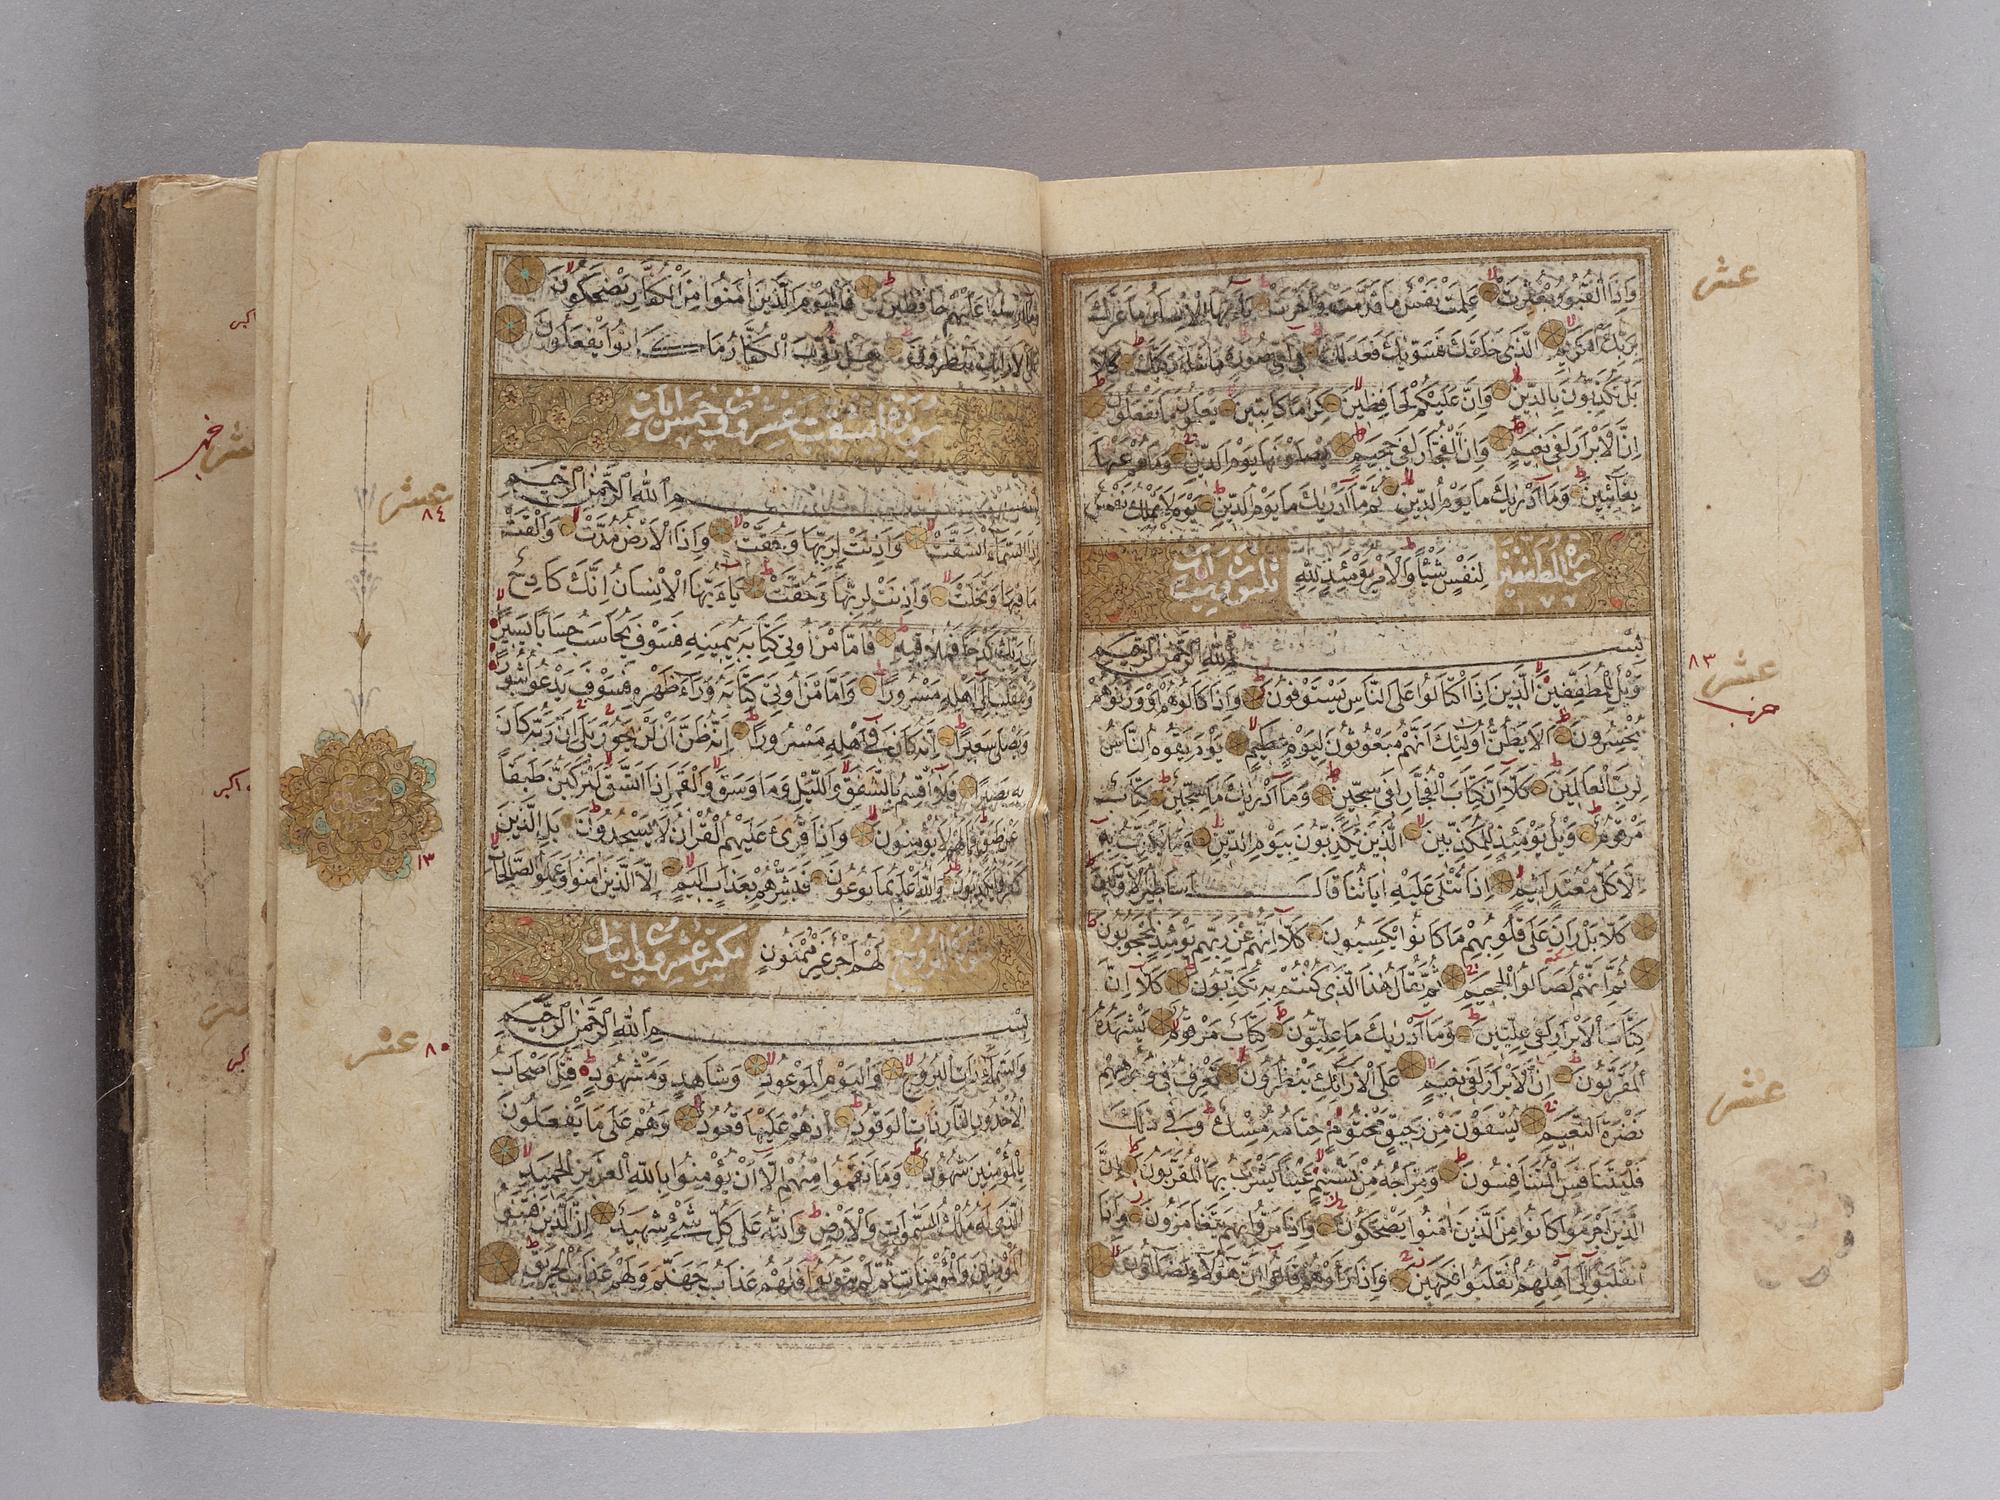 وَاِذَا الْقُبُورُ بُعْثِرَتْ عَلِمَتْ نَفْسٌ مَا قَدَّمَتْ وَاَخَّرَتْ يَاءَيُّهَا الْاِنْسَانُ مَا غَرَّكَ
بِرَبِّكَ الْكَرِيمِ الَّذِى خَلَقَكَ فَسَوّٰيكَ فَعَدَلَكَ فِى اَىِّ صُورَةٍ مَا شَاءَ رَكَّبَكَ كَلَّا
بَلْ تُكَذِّبُونَ بِالدِّينِ وَاِنَّ عَلَيْكُمْ لَحَافِظِينَ كِرَامًا كَاتِبِينَ يَعْلَمُونَ مَا تَفْعَلُونَ
اِنَّ الْاَبْرَارَ لَفِى نَعِيمٍ وَاِنَّ الْفُجَّارَ لَفِى جَحِيمٍ يَصْلَوْنَهَا يَوْمَ الدِّينِ وَمَا هُمْ عَنْهَا
بِغَائِبِينَ وَمَا اَدْرٰيكَ مَا يَوْمُ الدِّينِ ثُمَّ مَا اَدْرٰيكَ مَا يَوْمُ الدِّينِ يَوْمَ لَا تَمْلِكُ نَفْسٌ
سورة المطففين لِنَفْسٍ شَيْئًا وَالْاَمْرُ يَوْمَئِذٍ لِلّٰهِ ثلثون وست آيات
بِسْمِ اللّٰهِ الرَّحْمٰنِ الرَّحِيمِ
وَيْلٌ لِلْمُطَفِّفِينَ الَّذِينَ اِذَا اكْتَالُوا عَلَى النَّاسِ يَسْتَوْفُونَ وَاِذَا كَالُوهُمْ اَوْ وَزَنُوهُمْ
يُخْسِرُونَ اَلَا يَظُنُّ اُولٰئِكَ اَنَّهُمْ مَبْعُوثُونَ لِيَوْمٍ عَظِيمٍ يَوْمَ يَقُومُ النَّاسُ
لِرَبِّ الْعَالَمِينَ كَلَّا اِنَّ كِتَابَ الْفُجَّارِ لَفِى سِجِّينٍ وَمَا اَدْرٰيكَ مَا سِجِّينٌ كِتَابٌ
مَرْقُومٌ وَيْلٌ يَوْمَئِذٍ لِلْمُكَذِّبِينَ الَّذِينَ يُكَذِّبُونَ بِيَوْمِ الدِّينِ وَمَا يُكَذِّبُ بِهِ
اِلَّا كُلُّ مُعْتَدٍ اَثِيمٍ اِذَا تُتْلٰى عَلَيْهِ اٰيَاتُنَا قَالَ اَسَاطِيرُ الْاَوَّلِينَ
كَلَّا بَلْ رَانَ عَلٰى قُلُوبِهِمْ مَا كَانُوا يَكْسِبُونَ كَلَّا اِنَّهُمْ عَنْ رَبِّهِمْ يَوْمَئِذٍ لَمَحْجُوبُونَ
ثُمَّ اِنَّهُمْ لَصَالُوا الْجَحِيمِ ثُمَّ يُقَالُ هٰذَا الَّذِى كُنْتُمْ بِهِ تُكَذِّبُونَ كَلَّا اِنَّ
كِتَابَ الْاَبْرَارِ لَفِى عِلِّيِّينَ وَمَا اَدْرٰيكَ مَا عِلِّيُّونَ كِتَابٌ مَرْقُومٌ يَشْهَدُهُ
الْمُقَرَّبُونَ اِنَّ الْاَبْرَارَ لَفِى نَعِيمٍ عَلَى الْاَرَائِكِ يَنْظُرُونَ تَعْرِفُ فِى وُجُوهِهِمْ
نَضْرَةَ النَّعِيمِ يُسْقَوْنَ مِنْ رَحِيقٍ مَخْتُومٍ خِتَامُهُ مِسْكٌ وَفِى ذٰلِكَ
فَلْيَتَنَافَسِ الْمُتَنَافِسُونَ وَمِزَاجُهُ مِنْ تَسْنِيمٍ عَيْنًا يَشْرَبُ بِهَا الْمُقَرَّبُونَ اِنَّ
الَّذِينَ اَجْرَمُوا كَانُوا مِنَ الَّذِينَ اٰمَنُوا يَضْحَكُونَ وَاِذَا مَرُّوا بِهِمْ يَتَغَامَزُونَ وَاِذَا
انْقَلَبُوا اِلٰى اَهْلِهِمُ انْقَلَبُوا فَكِهِينَ وَاِذَا رَاَوْهُمْ قَالُوا اِنَّ هٰؤُلَاءِ لَضَالُّونَ
عشر
٨٣ عشر
حزب
عشر
وَمَا اُرْسِلُوا عَلَيْهِمْ حَافِظِينَ فَالْيَوْمَ الَّذِينَ اٰمَنُوا مِنَ الْكُفَّارِ يَضْحَكُونَ
عَلَى الْاَرَائِكِ يَنْظُرُونَ هَلْ ثُوِّبَ الْكُفَّارُ مَا كَانُوا يَفْعَلُونَ
سورة انشقت عشرون وخمس ايات
بِسْمِ اللّٰهِ الرَّحْمٰنِ الرَّحِيمِ
اِذَا السَّمَاءُ انْشَقَّتْ وَاَذِنَتْ لِرَبِّهَا وَحُقَّتْ وَاِذَا الْاَرْضُ مُدَّتْ وَاَلْقَتْ
مَا فِيهَا وَتَخَلَّتْ وَاَذِنَتْ لِرَبِّهَا وَحُقَّتْ يَاءَيُّهَا الْاِنْسَانُ اِنَّكَ كَادِحٌ
اِلٰى رَبِّكَ كَدْحًا فَمُلَاقِيهِ فَاَمَّا مَنْ اُوتِىَ كِتَابَهُ بِيَمِينِهِ فَسَوْفَ يُحَاسَبُ حِسَابًا يَسِيرًا
وَيَنْقَلِبُ اِلٰى اَهْلِهِ مَسْرُورًا وَاَمَّا مَنْ اُوتِىَ كِتَابَهُ وَرَاءَ ظَهْرِهِ فَسَوْفَ يَدْعُو ثُبُورًا
وَيَصْلٰى سَعِيرًا اِنَّهُ كَانَ فِى اَهْلِهِ مَسْرُورًا اِنَّهُ ظَنَّ اَنْ لَنْ يَحُورَ بَلٰى اِنَّ رَبَّهُ كَانَ
بِهِ بَصِيرًا فَلَا اُقْسِمُ بِالشَّفَقِ وَاللَّيْلِ وَمَا وَسَقَ وَالْقَمَرِ اِذَا اتَّسَقَ لَتَرْكَبُنَّ طَبَقًا
عَنْ طَبَقٍ فَمَا لَهُمْ لَا يُؤْمِنُونَ وَاِذَا قُرِئَ عَلَيْهِمُ الْقُرْاٰنُ لَا يَسْجُدُونَ بَلِ الَّذِينَ
كَفَرُوا يُكَذِّبُونَ وَاللّٰهُ اَعْلَمُ بِمَا يُوعُونَ فَبَشِّرْهُمْ بِعَذَابٍ اَلِيمٍ اِلَّا الَّذِينَ اٰمَنُوا وَعَمِلُوا الصَّالِحَاتِ
سورة البروج لَهُمْ اَجْرٌ غَيْرُ مَمْنُونٍ مكية عشرون وايتان
بِسْمِ اللّٰهِ الرَّحْمٰنِ الرَّحِيمِ
وَالسَّمَاءِ ذَاتِ الْبُرُوجِ وَالْيَوْمِ الْمَوْعُودِ وَشَاهِدٍ وَمَشْهُودٍ قُتِلَ اَصْحَابُ
الْاُخْدُودِ النَّارِ ذَاتِ الْوَقُودِ اِذْ هُمْ عَلَيْهَا قُعُودٌ وَهُمْ عَلٰى مَا يَفْعَلُونَ
بِالْمُؤْمِنِينَ شُهُودٌ وَمَا نَقَمُوا مِنْهُمْ اِلَّا اَنْ يُؤْمِنُوا بِاللّٰهِ الْعَزِيزِ الْحَمِيدِ
الَّذِى لَهُ مُلْكُ السَّمٰوَاتِ وَالْاَرْضِ وَاللّٰهُ عَلٰى كُلِّ شَىْءٍ شَهِيدٌ اِنَّ الَّذِينَ فَتَنُوا
الْمُؤْمِنِينَ وَالْمُؤْمِنَاتِ ثُمَّ لَمْ يَتُوبُوا فَلَهُمْ عَذَابُ جَهَنَّمَ وَلَهُمْ عَذَابُ الْحَرِيقِ
عشر
٨٤
١٣
عشر ٨٥